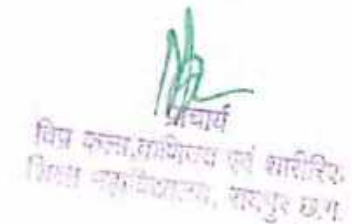 प्राचार्य
विप्र कला,वाणिज्य एवं शारीरिक
शिक्षा महाविद्यालय, रायपुर छ.ग.